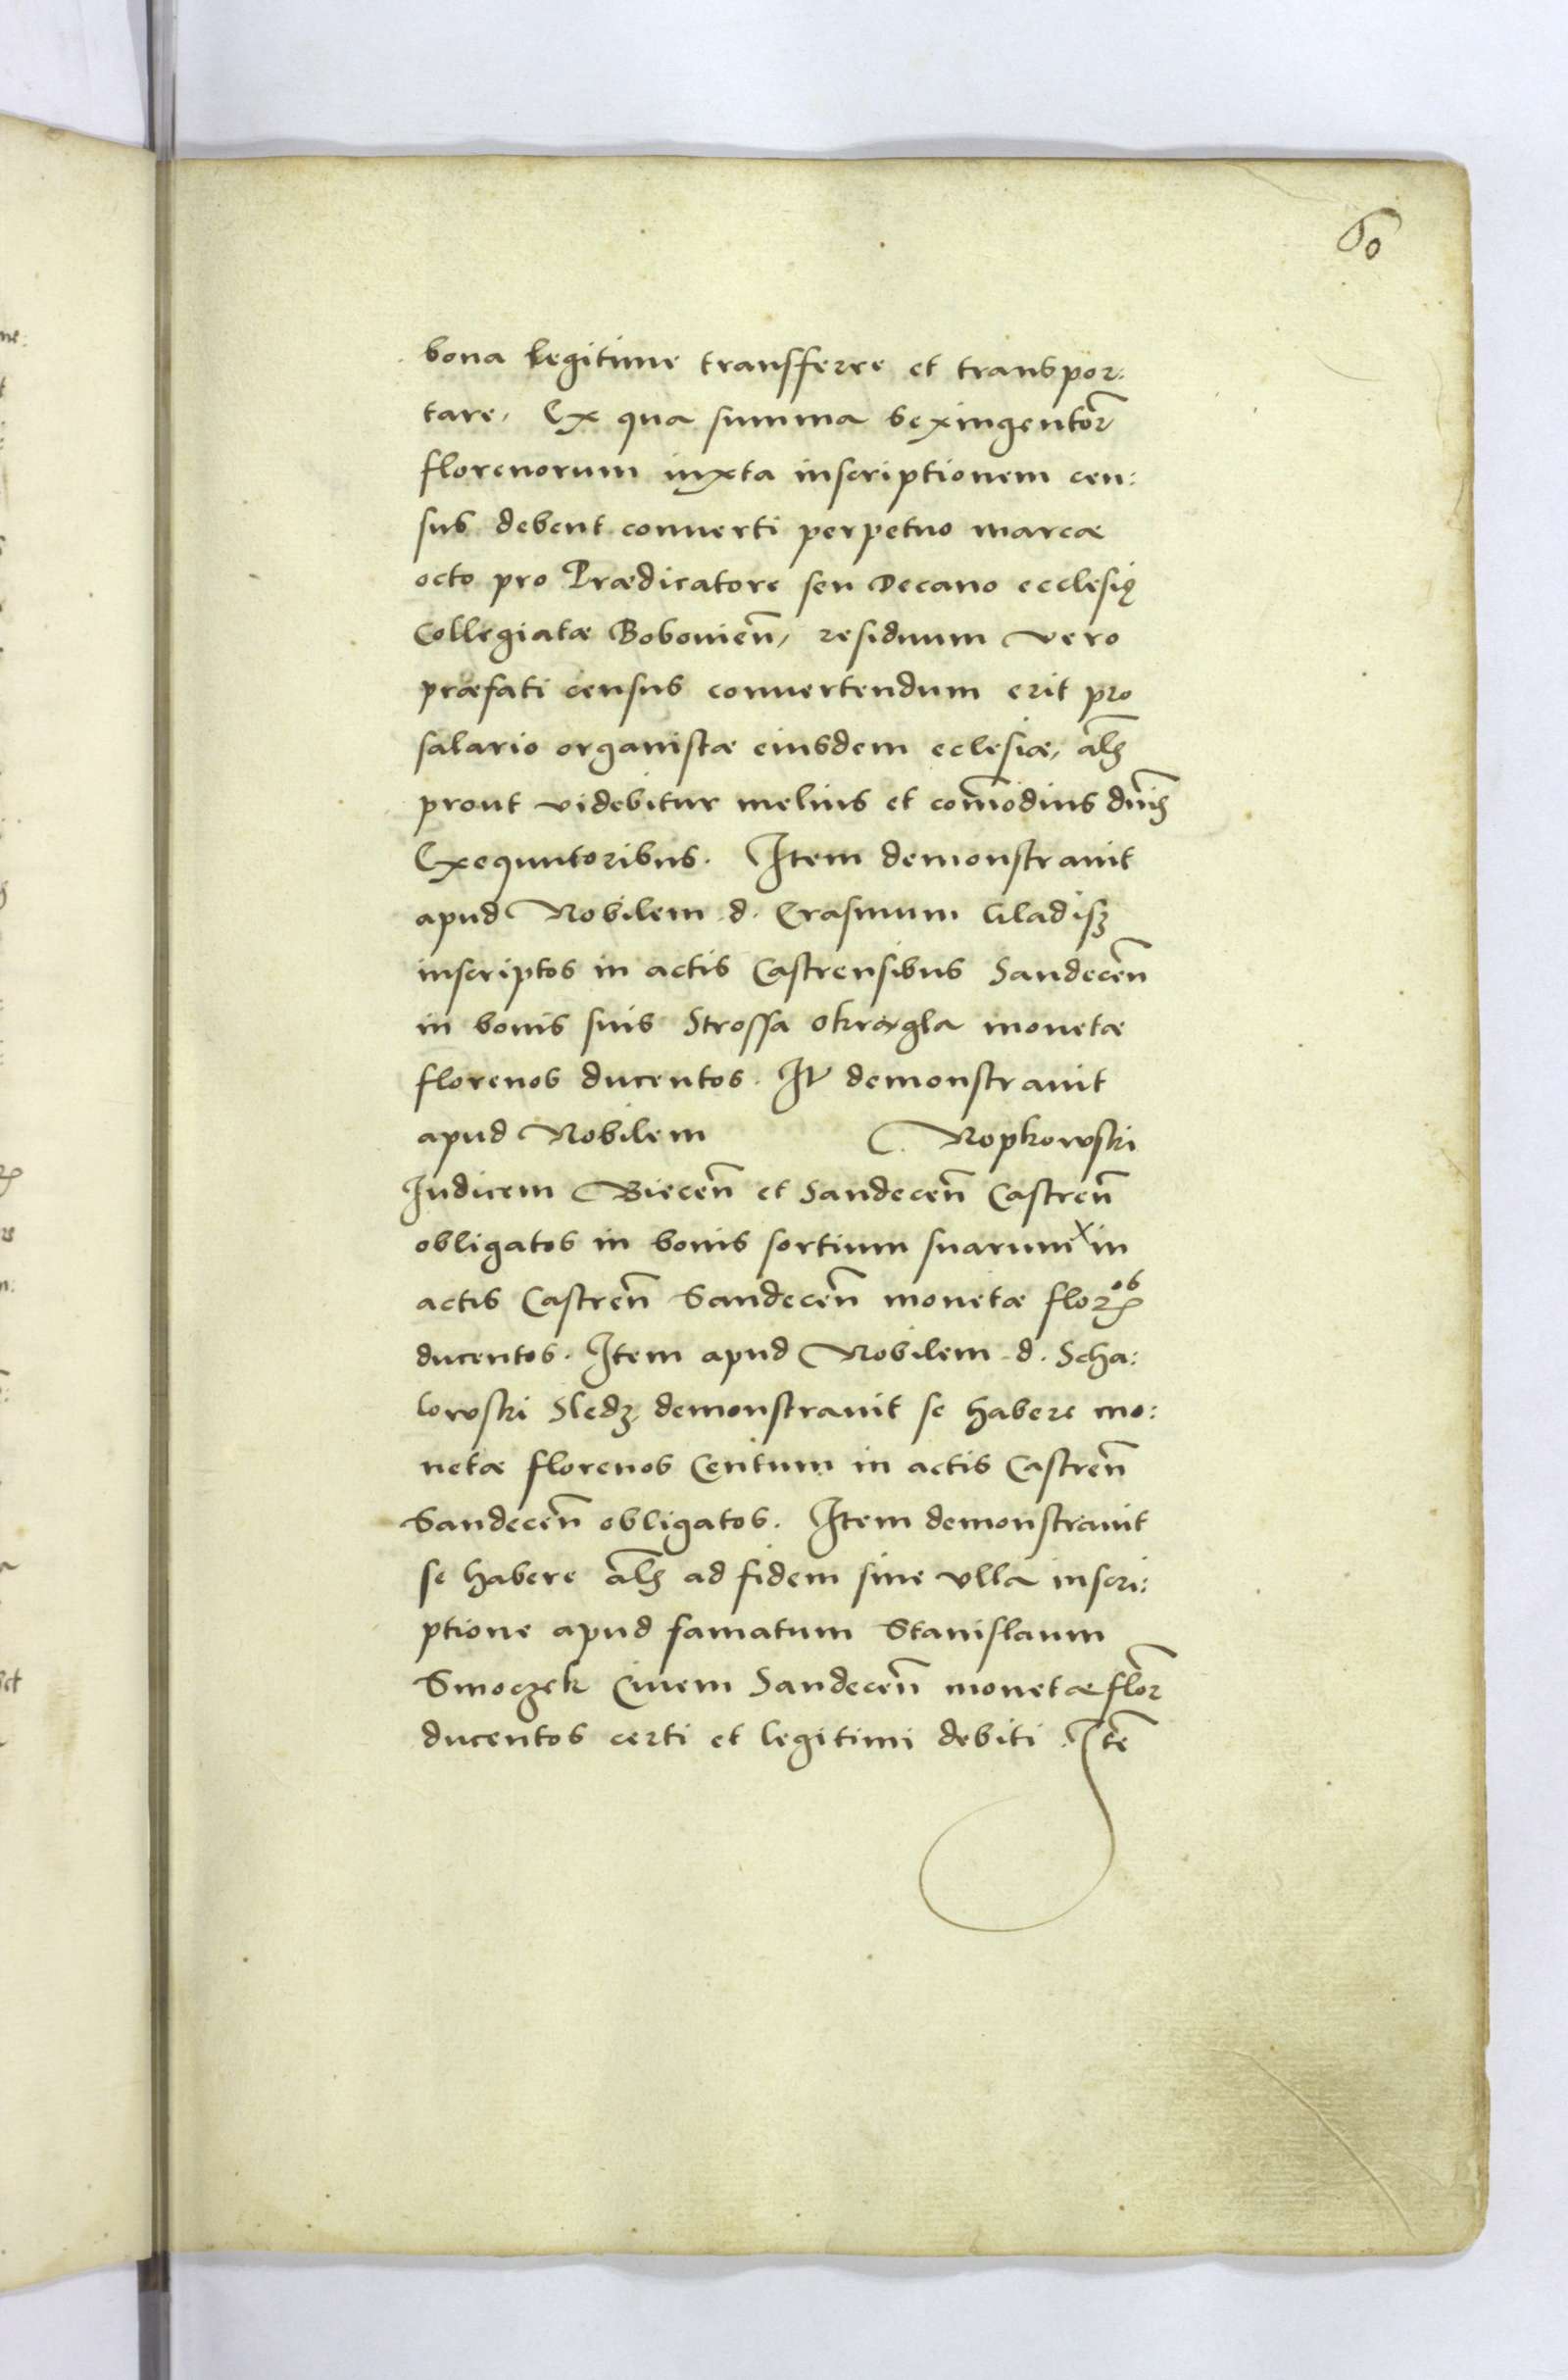 60
bona legitime transferre et transpor:
tare. Ex qua summa sexingentor̃
florenorum iuxta inscriptionem cen:
sus debent conuerti perpetuo marcæ
octo pro Prædicatore seu Decano ecclesię
Collegiatæ Bobouien̄, residuum vero
præfati census conuertendum erit pro
salario organistæ eiusdem eclesiæ, al̃s
prout videbitur melius et com̄odius dn̄is
Exequutoribus. Item demonstrauit
apud Nobilem d. Erasmum Gladisz
inscriptos in actis Castrensibus Sandecen̄
in bonis suis Strossa okragla monetæ
florenos ducentos. It̃ demonstrauit
apud Nobilem Ropkowski
Iudicem Biecen̄ et Sandecen̄ Castren̄
obligatos in bonis sortium suarum x in
actis Castren̄ Sandecen̄ monetæ flor os
ducentos. Item apud Nobilem d. Scha:
lowski Sledz demonstrauit se habere mo:
netæ florenos Centum in actis Castren̄
Sandecen̄ obligatos. Item demonstrauit
se habere al̃s ad fidem sine vlla inscri:
ptione apud famatum Stanislaum
Smoczek Ciuem Sandecen̄ monetæ flor̃
ducentos certi et legitimi debiti. Itẽ